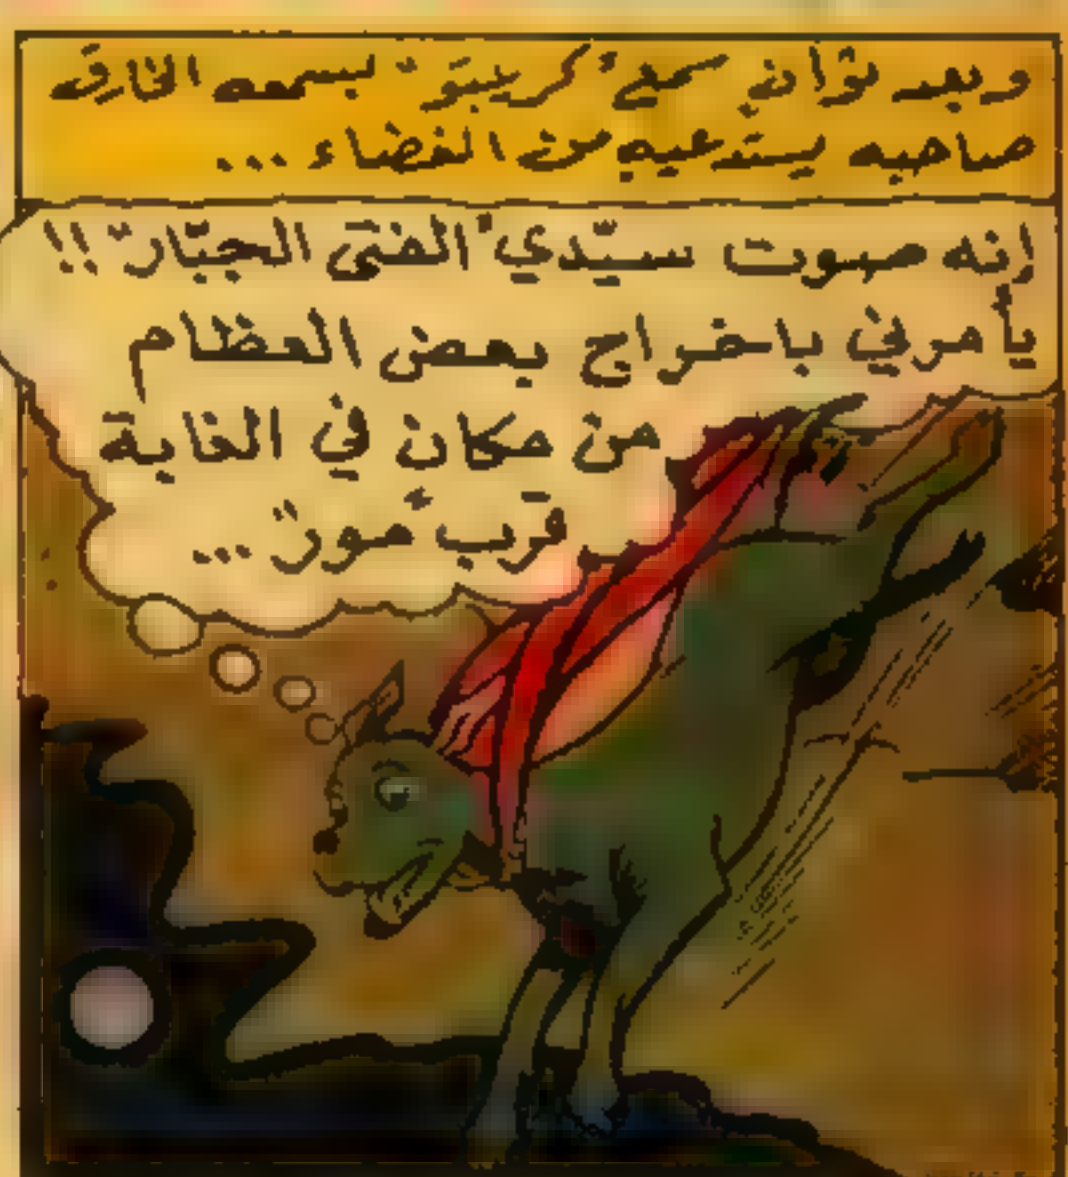 وبعد ثوانٍ سمع "كريبتو" بسمعه الخارق
صاحبه يستدعيه من الفضاء ...
إنه صوت سيّدي "الفتى الجبّار" !!
يأمرني باخراج بعض العظام
من مكان في الغابة
قرب "مور" ...